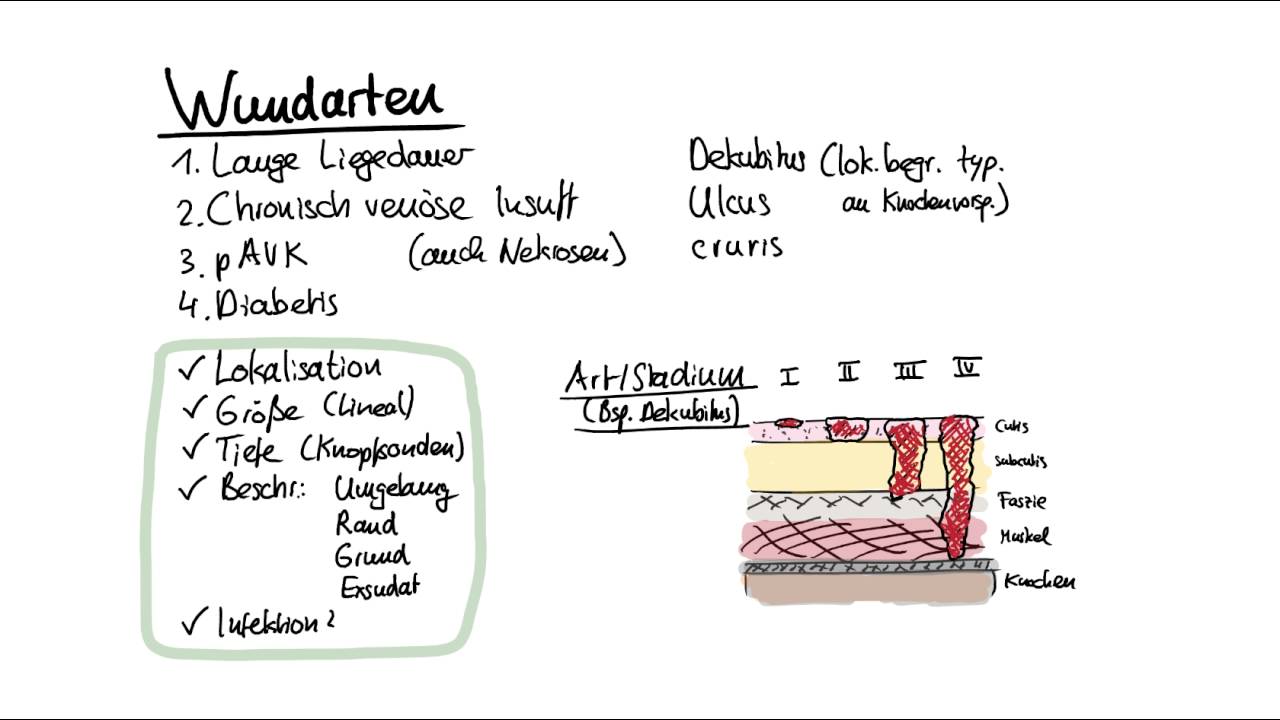 Wundarten
1. Lange Liegedauer
Dekubitus (lok. begr. typ.
an Knochenvorsp.)
2. Chronisch venöse Insuff
Ulcus
cruris
3. pAVK (auch Nekrosen)
4. Diabetis
✓ Lokalisation
✓ Größe (Lineal)
✓ Tiefe (Knopfsonden)
✓ Beschr.: Umgebung
Rand
Grund
Exsudat
✓ Infektion?
Art/Stadium I II III IV
(Bsp. Dekubitus)
Cutis
Subcutis
Faszie
Muskel
Knochen